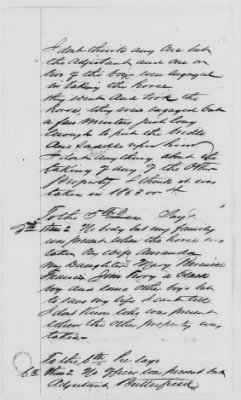 I dont think any one but
the Adjutant and one or
two of the boys was engaged
in taking the horse
they went and took the
horse, they was engaged but
a few minutes just long
enough to put the bridle
and saddle upon him
I dont anything about the
taking of any of the other
property I think it was
taken in 1863 or 4
To the 5th Int Says
5th Ans No body but my family
was present when the horse was
taken My wife Amanda
my Daughter Mary
Francis John a black
boy and some other boys but
to save my life I cant tell
I dont know who was present
when the other property was
taken
To the 6th he says
6th Ans No officer was present but
Adjutant Butterfield